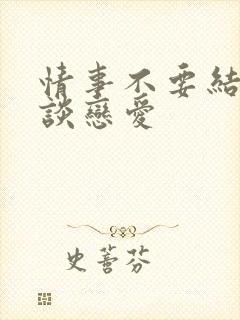 情事不要結
談戀愛
史蕾芬